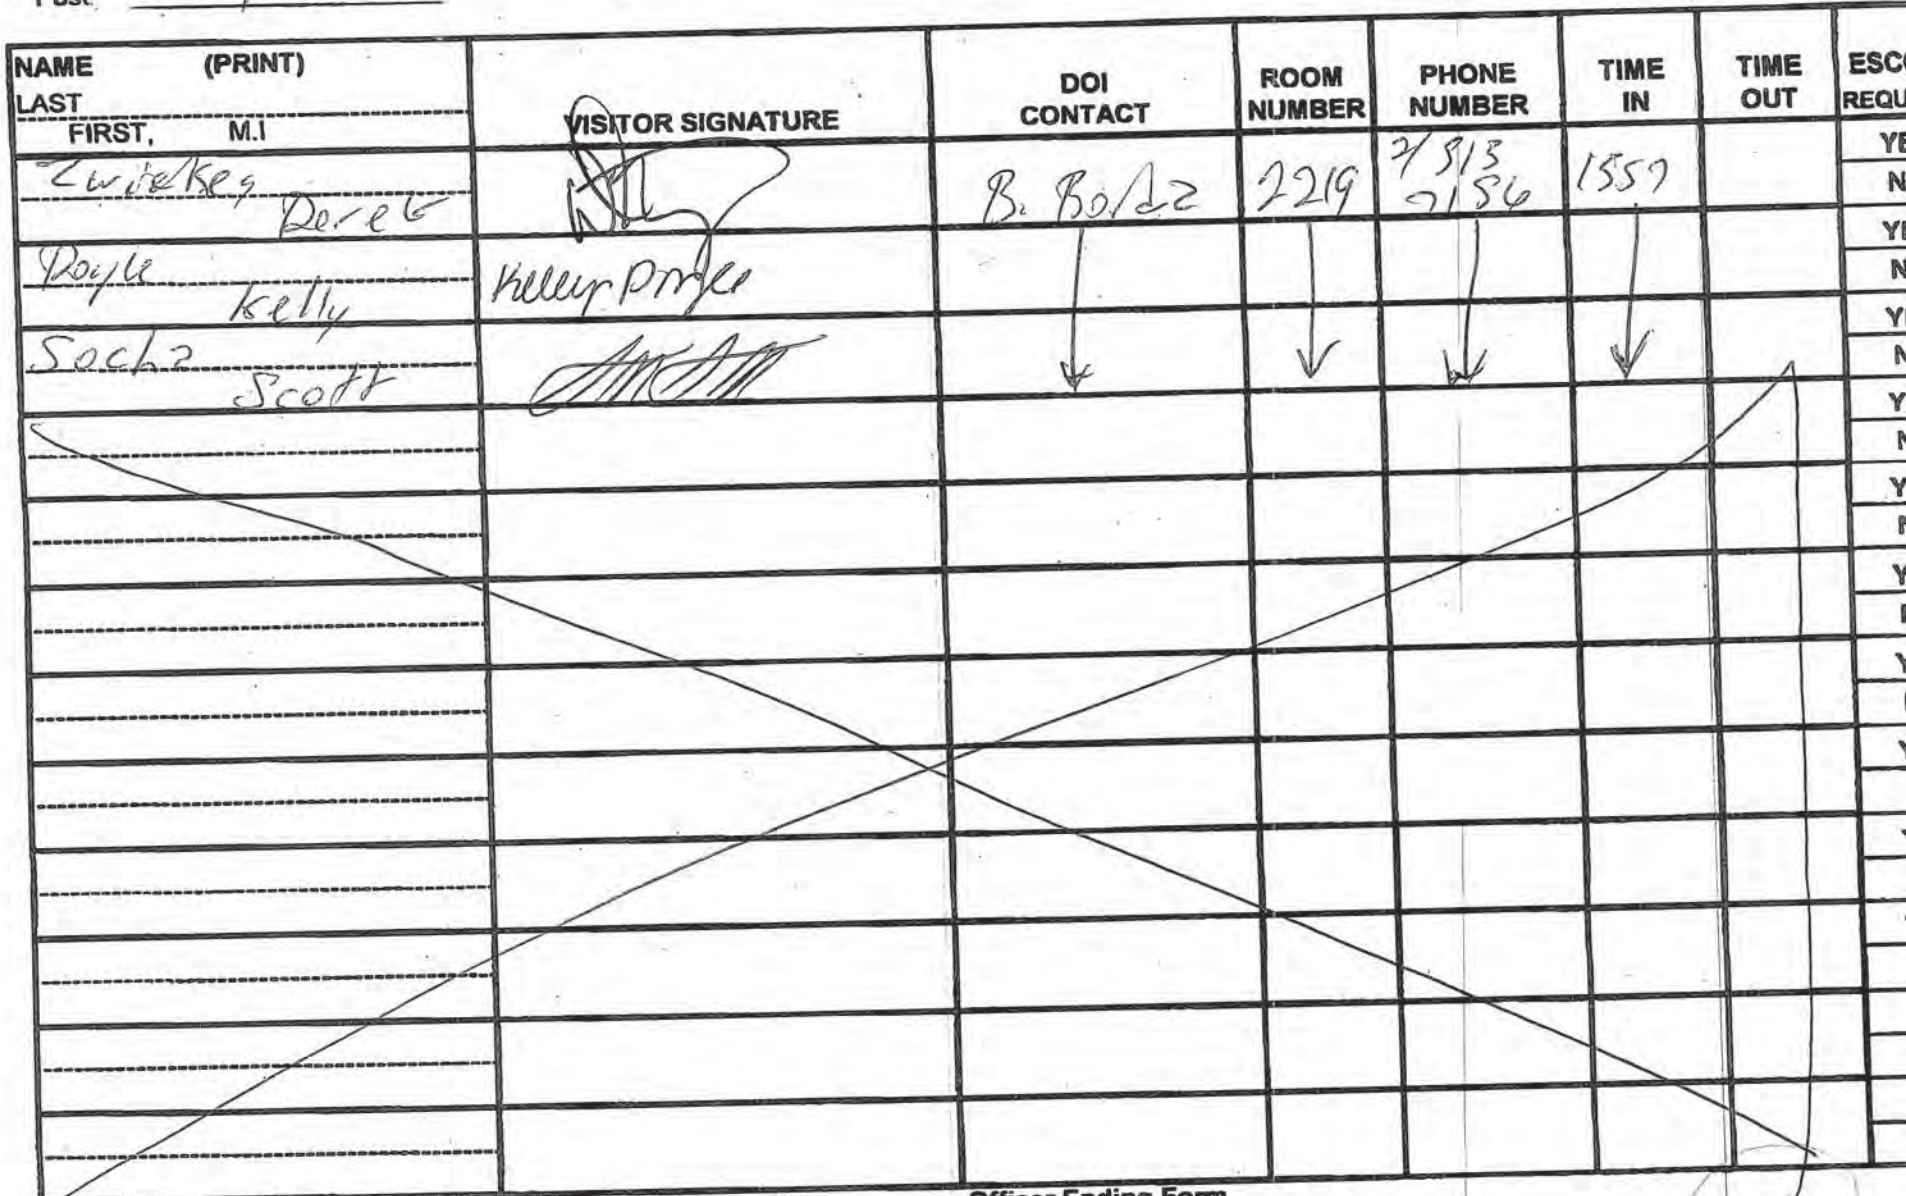 NAME (PRINT)
LAST
FIRST, M.I
VISITOR SIGNATURE
DOI
CONTACT
ROOM
NUMBER
PHONE
NUMBER
TIME
IN
TIME
OUT
Derek
B.
2219
1557
Doyle
Kelly
Kelly Doyle
Socha
Scott
Officer Ending Form